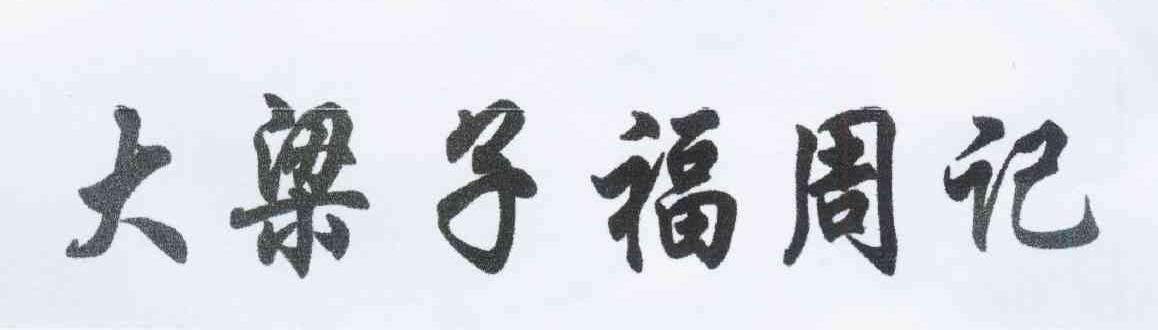 大梁子福周记